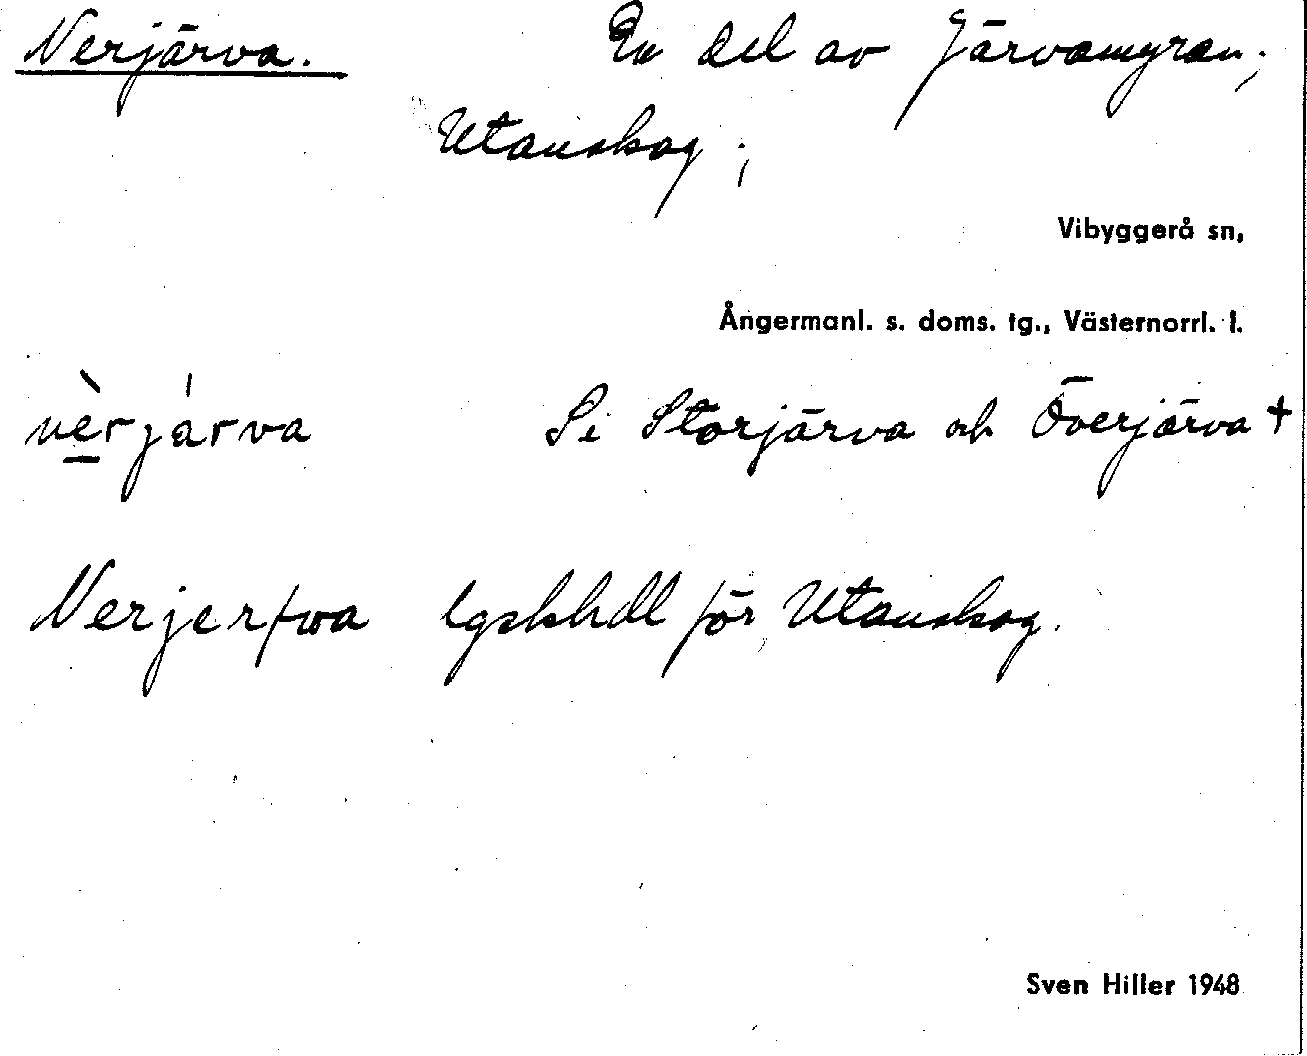 Nerjärva. En del av Järvamyran;
Utanskog;
Vibyggerå sn,
Ångermanl. s. doms. tg., Västernorrl. l.
nèrjárva Se Storjärva och Överjärva +
Nerjerfwa lgskhdl för Utanskog.
Sven Hiller 1948